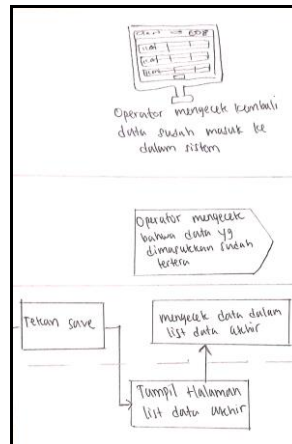 Operator mengecek kembali
data sudah masuk ke
dalam sistem
Operator mengecek
bahwa data yg
dimasukkan sudah
tertera
tekan save
mengecek data dalam
list data akhir
Tampil Halaman
list data akhir